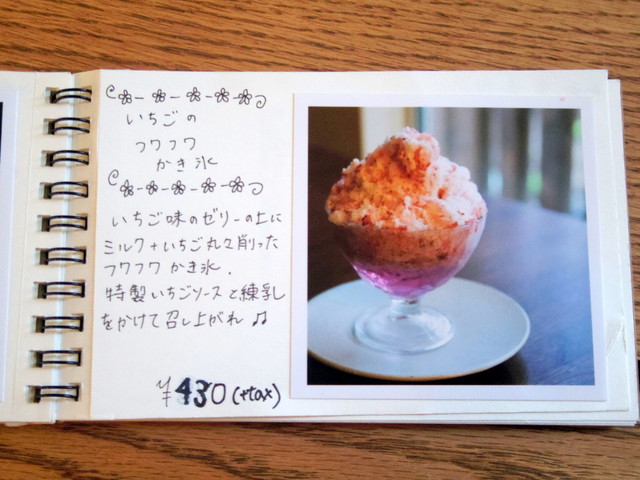 いちごの
フワフワ
かき氷
いちご味のゼリーの上に
ミルク+いちご丸ごと削った
フワフワかき氷.
特製いちごソースと練乳
をかけて召し上がれ♫
¥430(+tax)